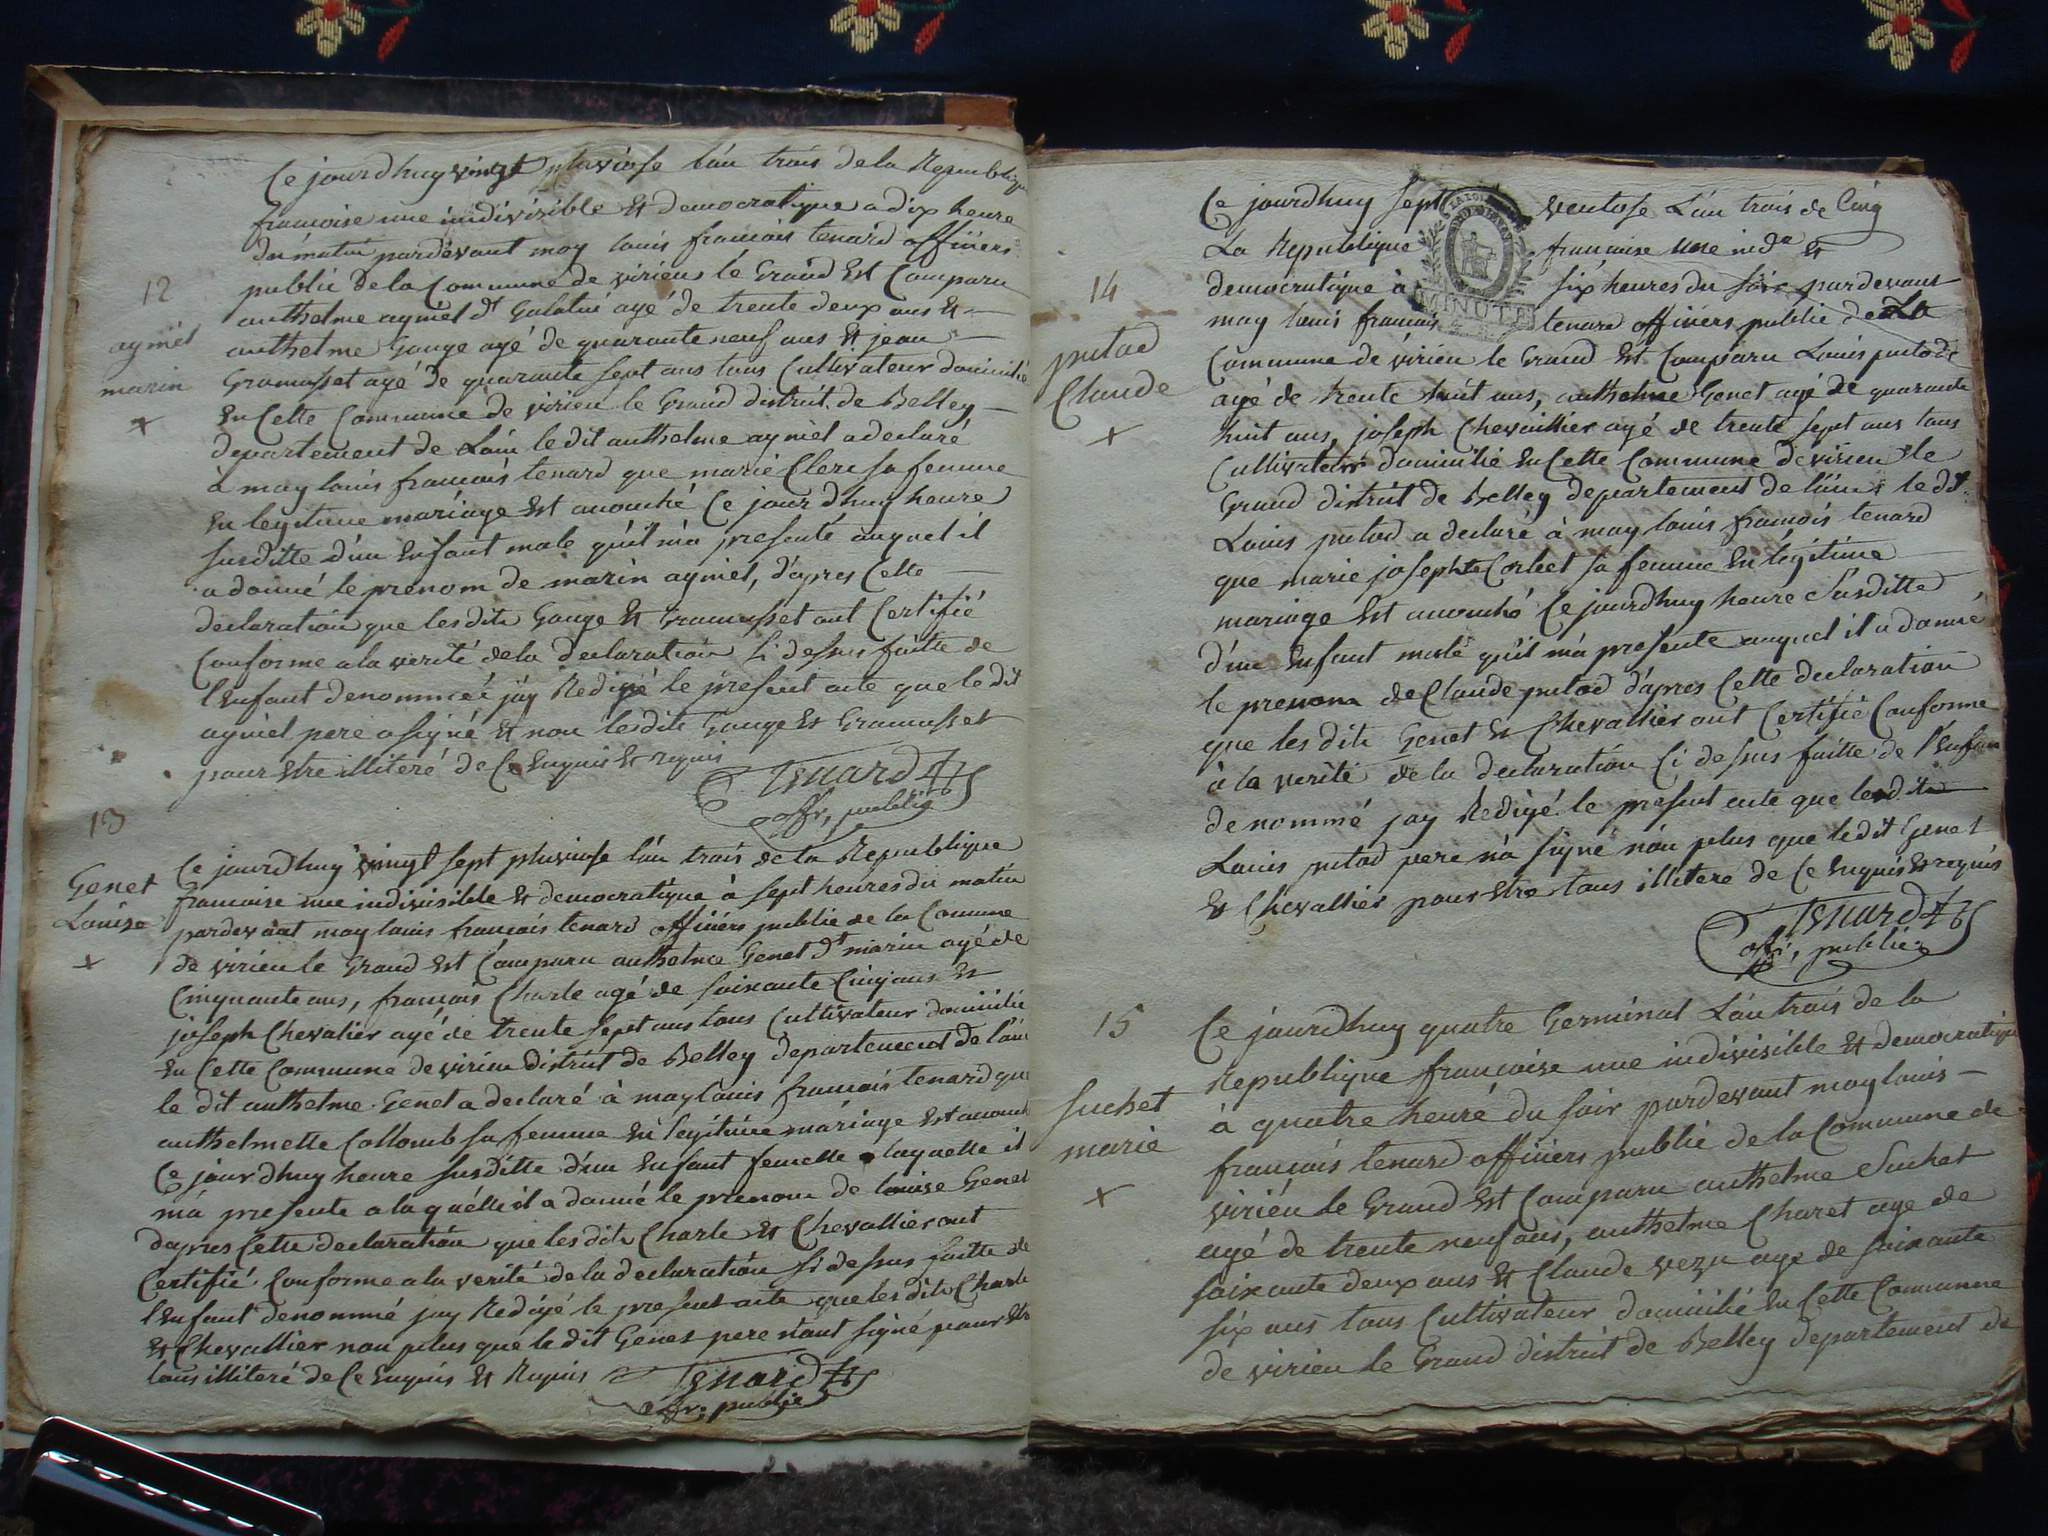 Ce jourdhuy vingt pluviose lán trois de la Republique
francoise une indivisible et democratique a dix heure
du mátin pardevant moy louis francois tenard officiers
public de la Commune de virieus le Grand Est Comparu
12
anthelme aymet dt Galatin agé de trente deux ans et
aymet
anthelme Gouge agé de quarante neuf ans et jean
marin
Gramusset agé de quarante sept ans tous Cultivateur domicilié
+
En Cette Commune de virieu le Grand distrit de Belley
departement de Láin le dit anthelme aymet a declaré
à moy louis francois tenard que marie Clere sa femme
En legitime mariage Est acouché Ce jourdhuy heure
susditte d'un Enfant male quil má presenté auquel il
a donné le prenom de marin aymet, d'apres Cette
declaration que lesdits Gouge et Gramusset ont Certifié
Conforme a la verité de la declaration si dessus faitte de
l'enfant denommée jáy Redigé le present acte que le dit
aymet pere a signé et non lesdits Gouge et Gramusset
pour Etre illiteré de Ce Enquis et requis
Tenard
offr, public
13
Genet
Louise
+
Ce jourdhuy vingt sept pluviose lán trois de la Republique
francoise une indivisible et democratique à sept heures du matin
pardevant moy louis francois tenard officiers public de la Comune
de virieu le Grand Est Comparu anthelme Genet dt marin agé de
Cinquante ans, francois Charle agé de soixante Cinq ans et
joseph Chevalier agé de trente sept ans tous Cultivateur domicilié
En Cette Commune de virieu distrit de Belley departement de láin
le dit anthelme Genet a declaré à moy louis francois tenard que
anthelmette Collomb sa femme En legitime mariage Est acouch
Ce jourdhuy heure susditte d'un Enfant femelle laquelle il
má presente a laquelle il a donné le prenom de louise Genet
dapres Cette declaration que les dits Charle et Chevallier ont
Certifié Conforme a la verité de la declaration si dessus faitte de
lenfant denommé jay Redigé le present acte que les dits Charle
et Chevallier non plus que le dit Genet pere nont signé pour Etre
tous illiteré de Ce Enquis et Requis
Tenard
offr, public
Ce jourdhuy sept ventose Lán trois de Cinq
La Republique francoise une inda et
democratique à six heures du soir pardevant
14
moy louis francois tenard officiers public de La
putod
Claude
+
Commune de virieu le Grand Est Comparu Louis putod
agé de trente huit ans, anthelme Genet agé de quarante
huit ans, joseph Chevallier agé de trente sept ans tous
Cultivateur domicilié En Cette Commune de virieu le
Grand distrit de Belley departement de láin le dt
Louis putod a declaré à moy louis francois tenard
que marie josephte Corbet sa femme En légitime
mariage Est acouché Ce jourdhuy heure susditte
d'un Enfant malé qu'il má presente auquel il a donné
le prenom de Claude putod d'apres Cette declaration
que les dits Genet et Chevallier ont Certifié Conforme
à la verité de la declaration Ci dessus faitte de l'enfan
denommé jay Redigé le present acte que lesdits
Louis putod pere n'a signé nón plus que le dit Genet
et Chevallier pour Etre tous illiteré de Ce Enquis et requis
Tenard
offr, public
LA LOI
MINUTE
15
Suchet
marie
+
Ce jourdhuy quatre Germinal Lán trois de la
Republique francoise une indivisible et democratique
à quatre heuré du soir pardevant moy louis
francois tenard officiers public de la Commune de
virieu le Grand Est Comparu anthelme Suchet
agé de trente neuf ans, anthelme Charet age de
soixante deux ans et Claude vezu age de soixante
six ans tous Cultivateur domicilié En Cette Commune
de virieu le Grand distrit de Belley departement de